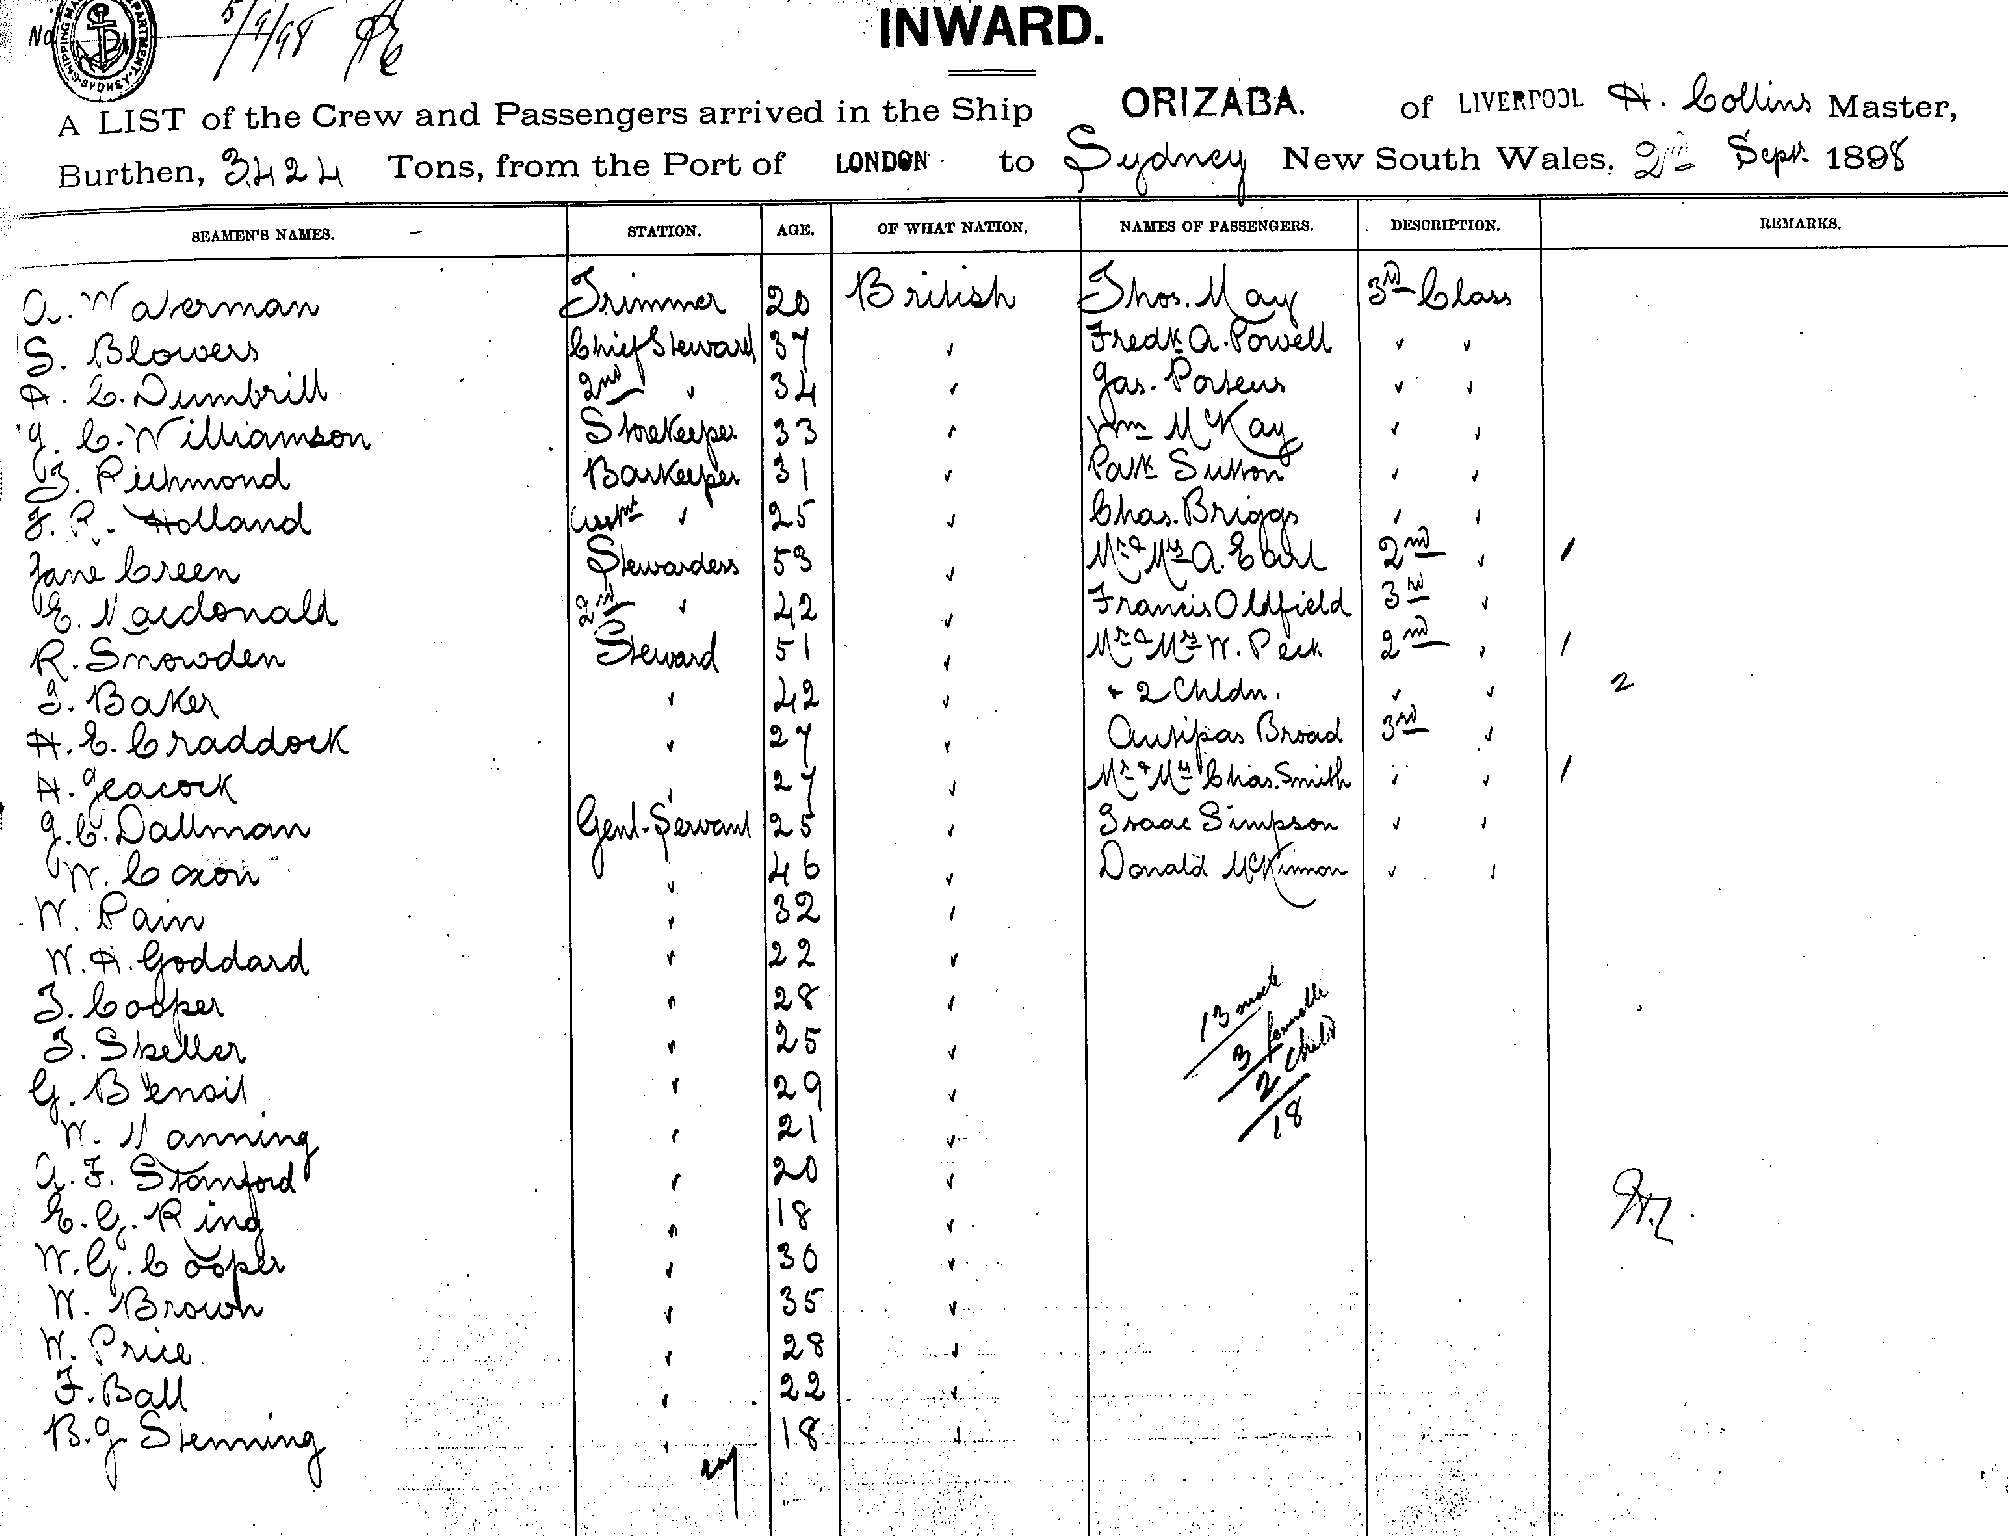 No. 5/9/98
INWARD.
A LIST of the Crew and Passengers arrived in the Ship ORIZABA. of LIVERPOOL H. Collins Master,
Burthen, 3424 Tons, from the Port of LONDON to Sydney New South Wales, 2nd Sept. 1898
SEAMEN'S NAMES. STATION. AGE. OF WHAT NATION. NAMES OF PASSENGERS. DESCRIPTION. REMARKS.
A. Waterman Trimmer 20 British Thos. May 3rd Class
S. Blowers Chief Steward 37 " Fredk A. Powell " "
H. E. Dumbrill 2nd " 34 " Jas. Porteus " "
J. C. Williamson Storekeeper 33 " Wm McKay " "
J. Richmond Barkeeper 31 " Patk Sutton " "
F. R. Holland Asst " 25 " Chas. Briggs " "
Jane Green Stewardess 53 " Mr & Mrs A. Earl 2nd " 1
E. Macdonald 2nd " 42 " Francis Oldfield 3rd "
R. Snowden Steward 51 " Mr & Mrs W. Peck 2nd " 1
J. Baker " 42 " + 2 Chldn. " " 2
H. E. Craddock " 27 " Antipas Broad 3rd "
H. Geacock " 27 " Mr & Mrs Chas. Smith " " 1
J. C. Dallman Genl. Servant 25 " Isaac Simpson " "
W. Coxon " 46 " Donald McKinnon " "
W. Pain " 32 "
W. H. Goddard " 22 "
J. Cooper " 28 "
J. Skeller " 25 "
G. Benoit " 29 "
W. Manning " 21 "
A. F. Stanford " 20 "
E. G. Ring " 18 "
W. G. Cooper " 30 "
W. Brown " 35 "
W. Price " 28 "
F. Ball " 22 "
B. J. Stenning " 18 "
13 male
3 female
2 child
18